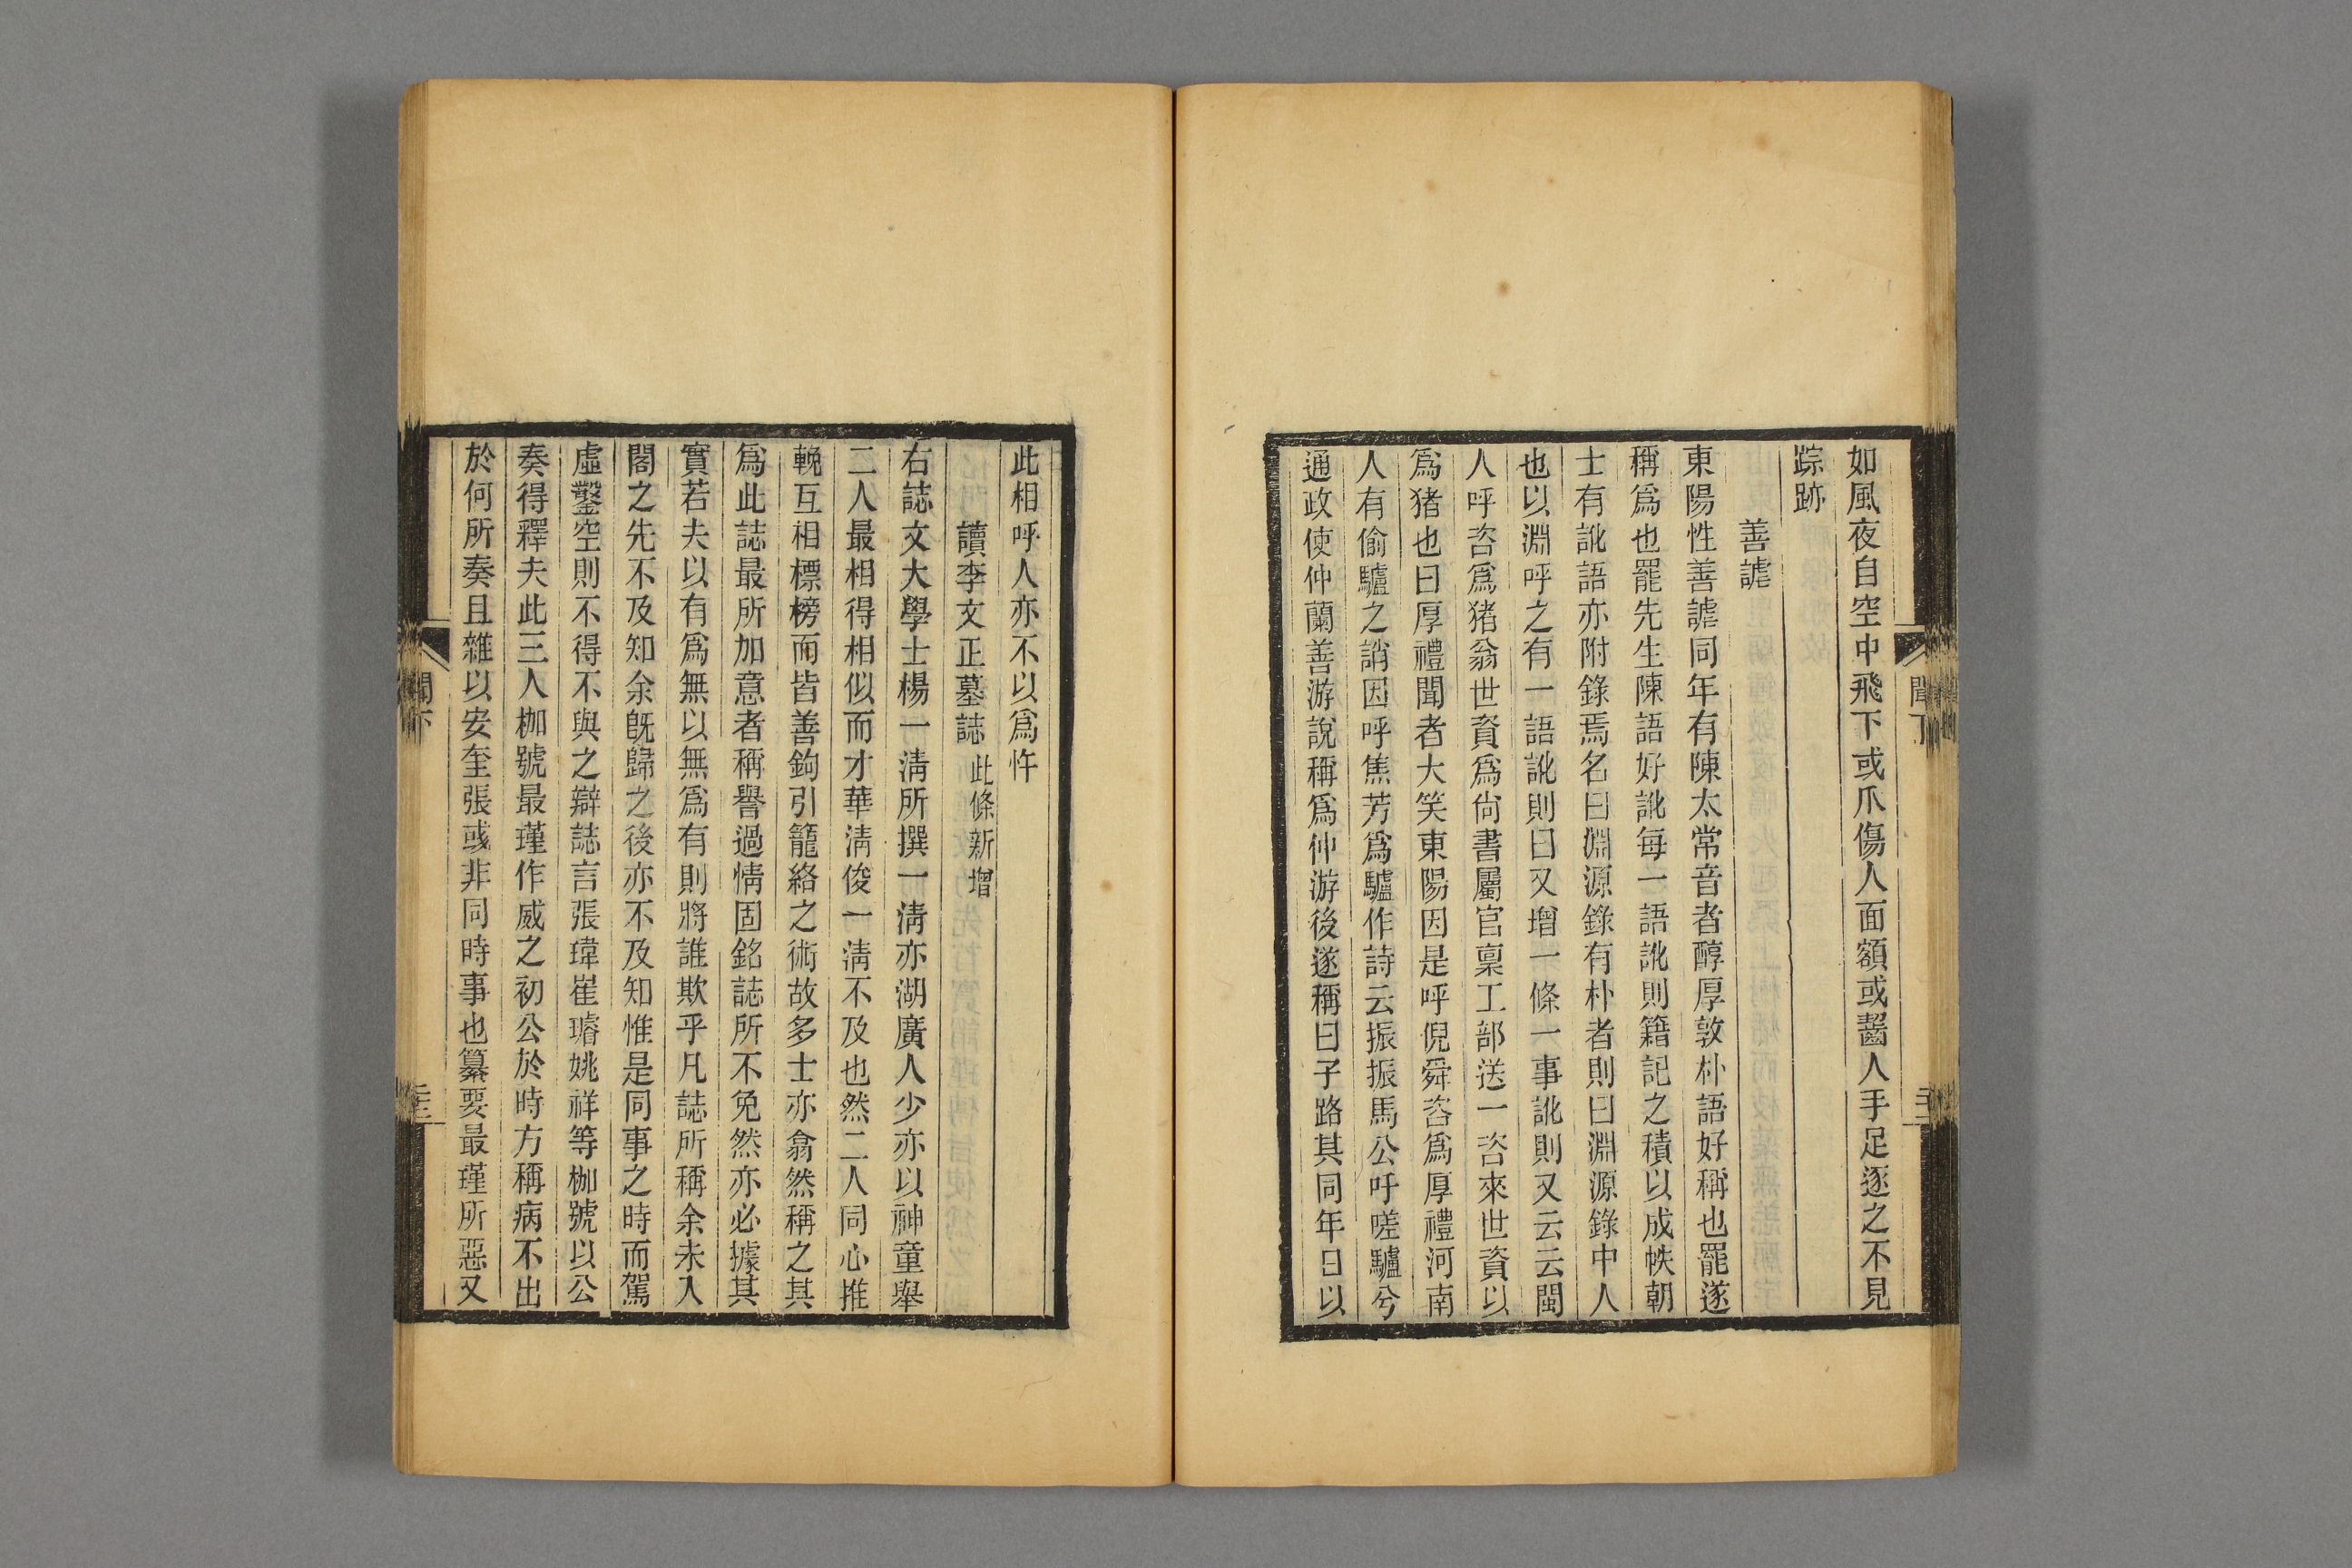 如風夜自空中飛下或爪傷人面額或齧人手足逐之不見
踪跡
善謔
東陽性善謔同年有陳太常音者醇厚敦朴語好稱也罷遂
稱爲也罷先生陳語好訛每一語訛則籍記之積以成帙朝
士有訛語亦附錄焉名曰淵源錄有朴者則曰淵源錄中人
也以淵呼之有一語訛則曰又增一條一事訛則又云云閩
人呼咨爲猪翁世資爲尚書屬官稟工部送一咨來世資以
爲猪也曰厚禮聞者大笑東陽因是呼倪舜咨爲厚禮河南
人有偷驢之誚因呼焦芳爲驢作詩云振振馬公吁嗟驢兮
通政使仲蘭善游說稱爲仲游後遂稱曰子路其同年日以
聞下
此相呼人亦不以爲忤
讀李文正墓誌 此條新增
右誌文大學士楊一淸所撰一淸亦湖廣人少亦以神童舉
二人最相得相似而才華淸俊一淸不及也然二人同心推
輓互相標榜而皆善鉤引籠絡之術故多士亦翕然稱之其
爲此誌最所加意者稱譽過情固銘誌所不免然亦必據其
實若夫以有爲無以無爲有則將誰欺乎凡誌所稱余未入
閣之先不及知余旣歸之後亦不及知惟是同事之時而駕
虛鑿空則不得不與之辯誌言張瑋崔璿姚祥等枷號以公
奏得釋夫此三人枷號最瑾作威之初公於時方稱病不出
於何所奏且雜以安奎張彧非同時事也纂要最瑾所惡又
聞下